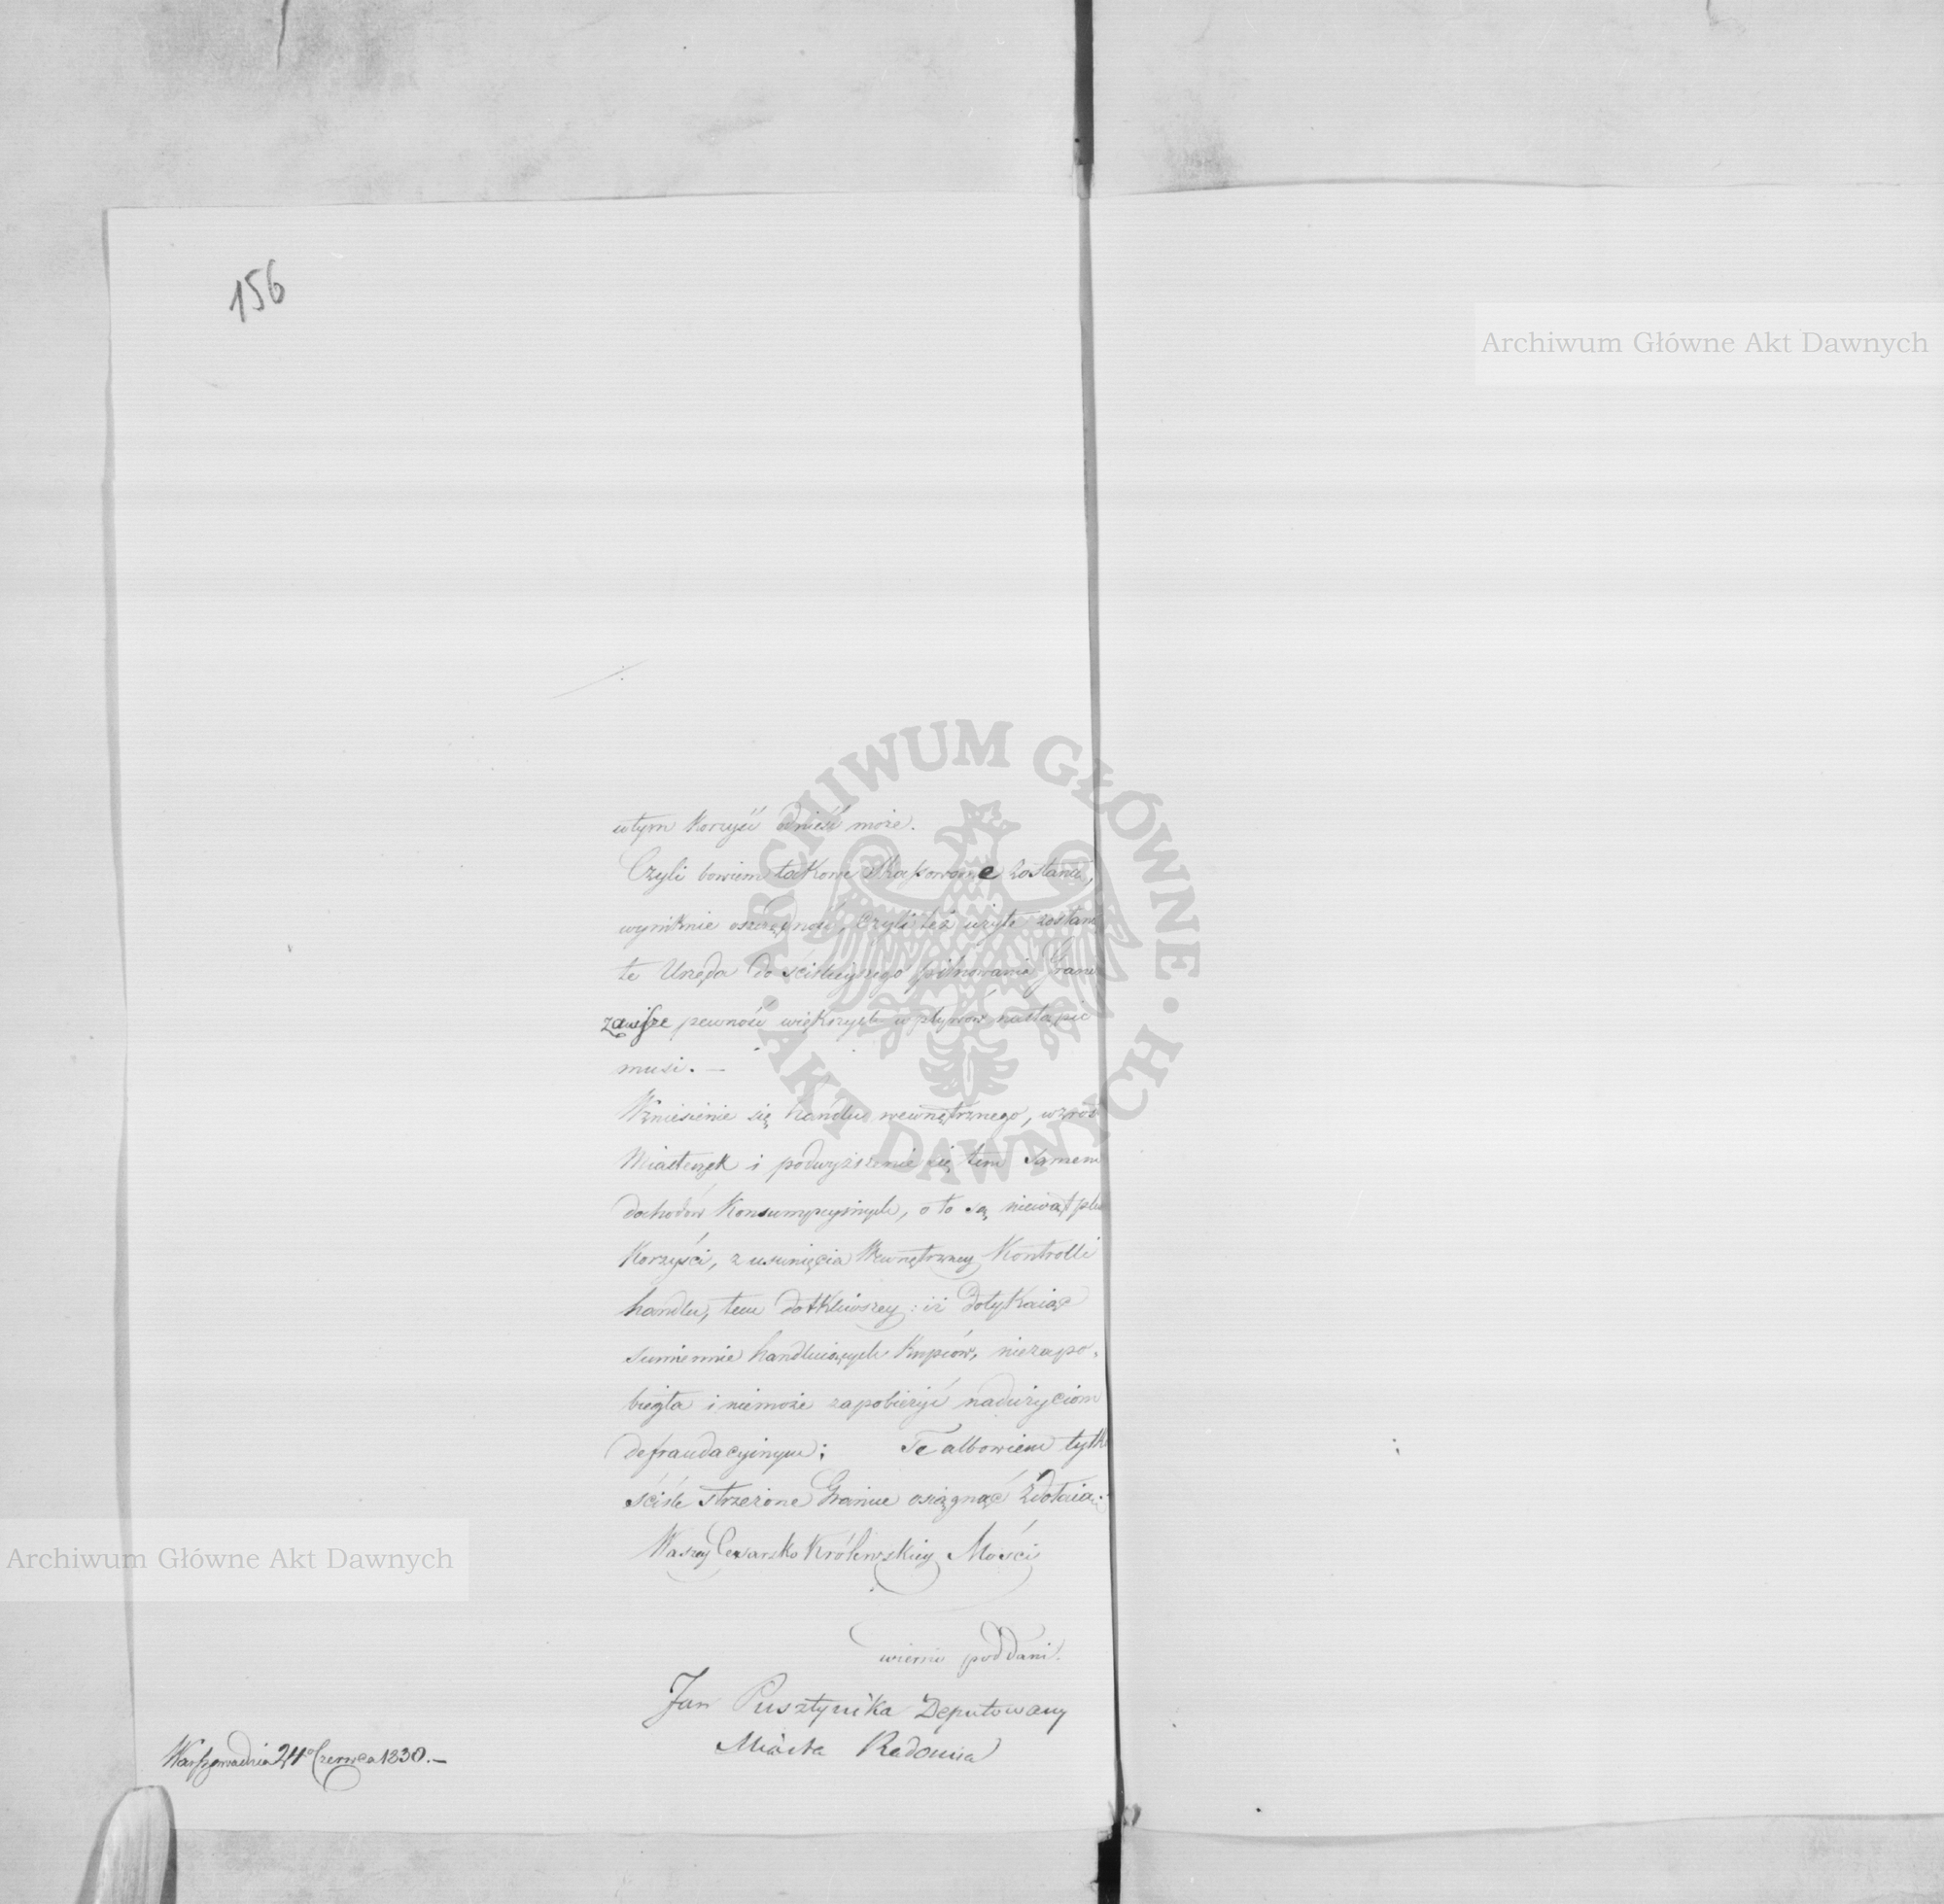 156
Archiwum Główne Akt Dawnych
w tym korzyść odnieść może.
Czyli bowiem takowe skassowane zostaną,
wyniknie oszczędność, czyli też użyte zostaną
te Urzęda do ściśleyszego pilnowania Granic
zawsze pewność większych wpływów nastąpić
musi. —
Wzniesienie się handlu wewnętrznego, wzrost
Miasteczek i podwyższenie się tem samem
dochodów Konsumpcyinych, oto są niewątpliwe
Korzyści, z usunięcia Wewnętrzney Kontrolli
handlu, tem dotkliwszey: iż dotykaiąc
sumiennie handluiących Kupców, niezapo-
biegła i niemoże zapobieżyć nadużyciom
defraudacyinym; Te albowiem tylko
ściśle strzeżone Granice osiągnąć zdołaią.
Waszey Cesarsko Królewskiey Mości
wierni poddani.
Jan Pusztynika Deputowany
Miasta Radomia
Warszawa dnia 24o Czerwca 1830. —
Archiwum Główne Akt Dawnych
ARCHIWUM GŁÓWNE · AKT DAWNYCH ·